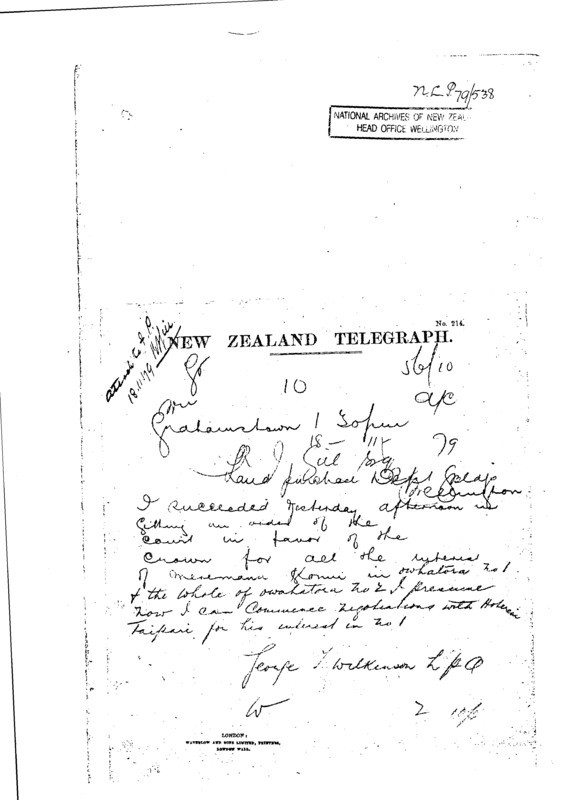 N.L.P 79/538
NATIONAL ARCHIVES OF NEW ZEAL
HEAD OFFICE WELLINGTON
18.11.79
No. 214.
NEW ZEALAND TELEGRAPH.
56/10
10
Grahamstown 1
18 - 11 79
R J Gill Esq
Land purchase Dept
Wellington
I succeeded yesterday afternoon in
getting an order of the
Court in favor of the
Crown for all the interest
of Meremana Konui in Owhatora No 1
& the whole of Owhatora No 2 I presume
now I can commence negotiations with Hoterini
Taipari for his interest in No 1
George T Wilkinson L P O
W 2
LONDON:
WATERLOW AND SONS LIMITED, PRINTERS,
LONDON WALL.